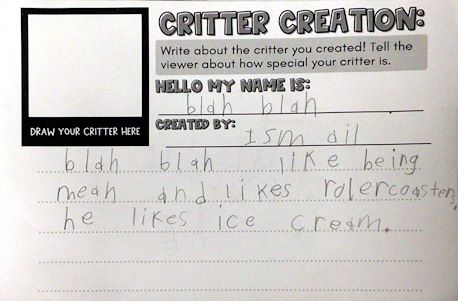 CRITTER CREATION:
Write about the critter you created! Tell the
viewer about how special your critter is.
HELLO MY NAME IS:
blah blah
CREATED BY:
Ismail
DRAW YOUR CRITTER HERE
blah blah like being
meah and likes rolercoasters,
he likes ice cream.